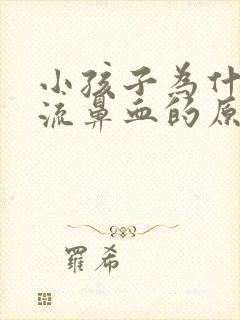 小孩子為什
流鼻血的原
羅希